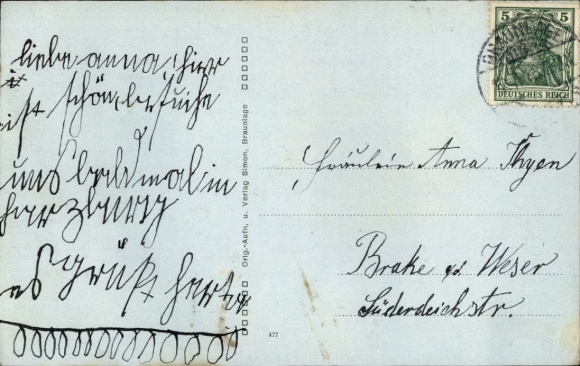 liebe anna! hier
ist schön, besuche
uns bald mal in
harzburg
es grüßt herta
Orig.-Aufn. u. Verlag Simon, Braunlage
477
5 5
DEUTSCHES REICH
Fräulein Anna Thyen
Brake a.d. Weser
Süderdeichstr.